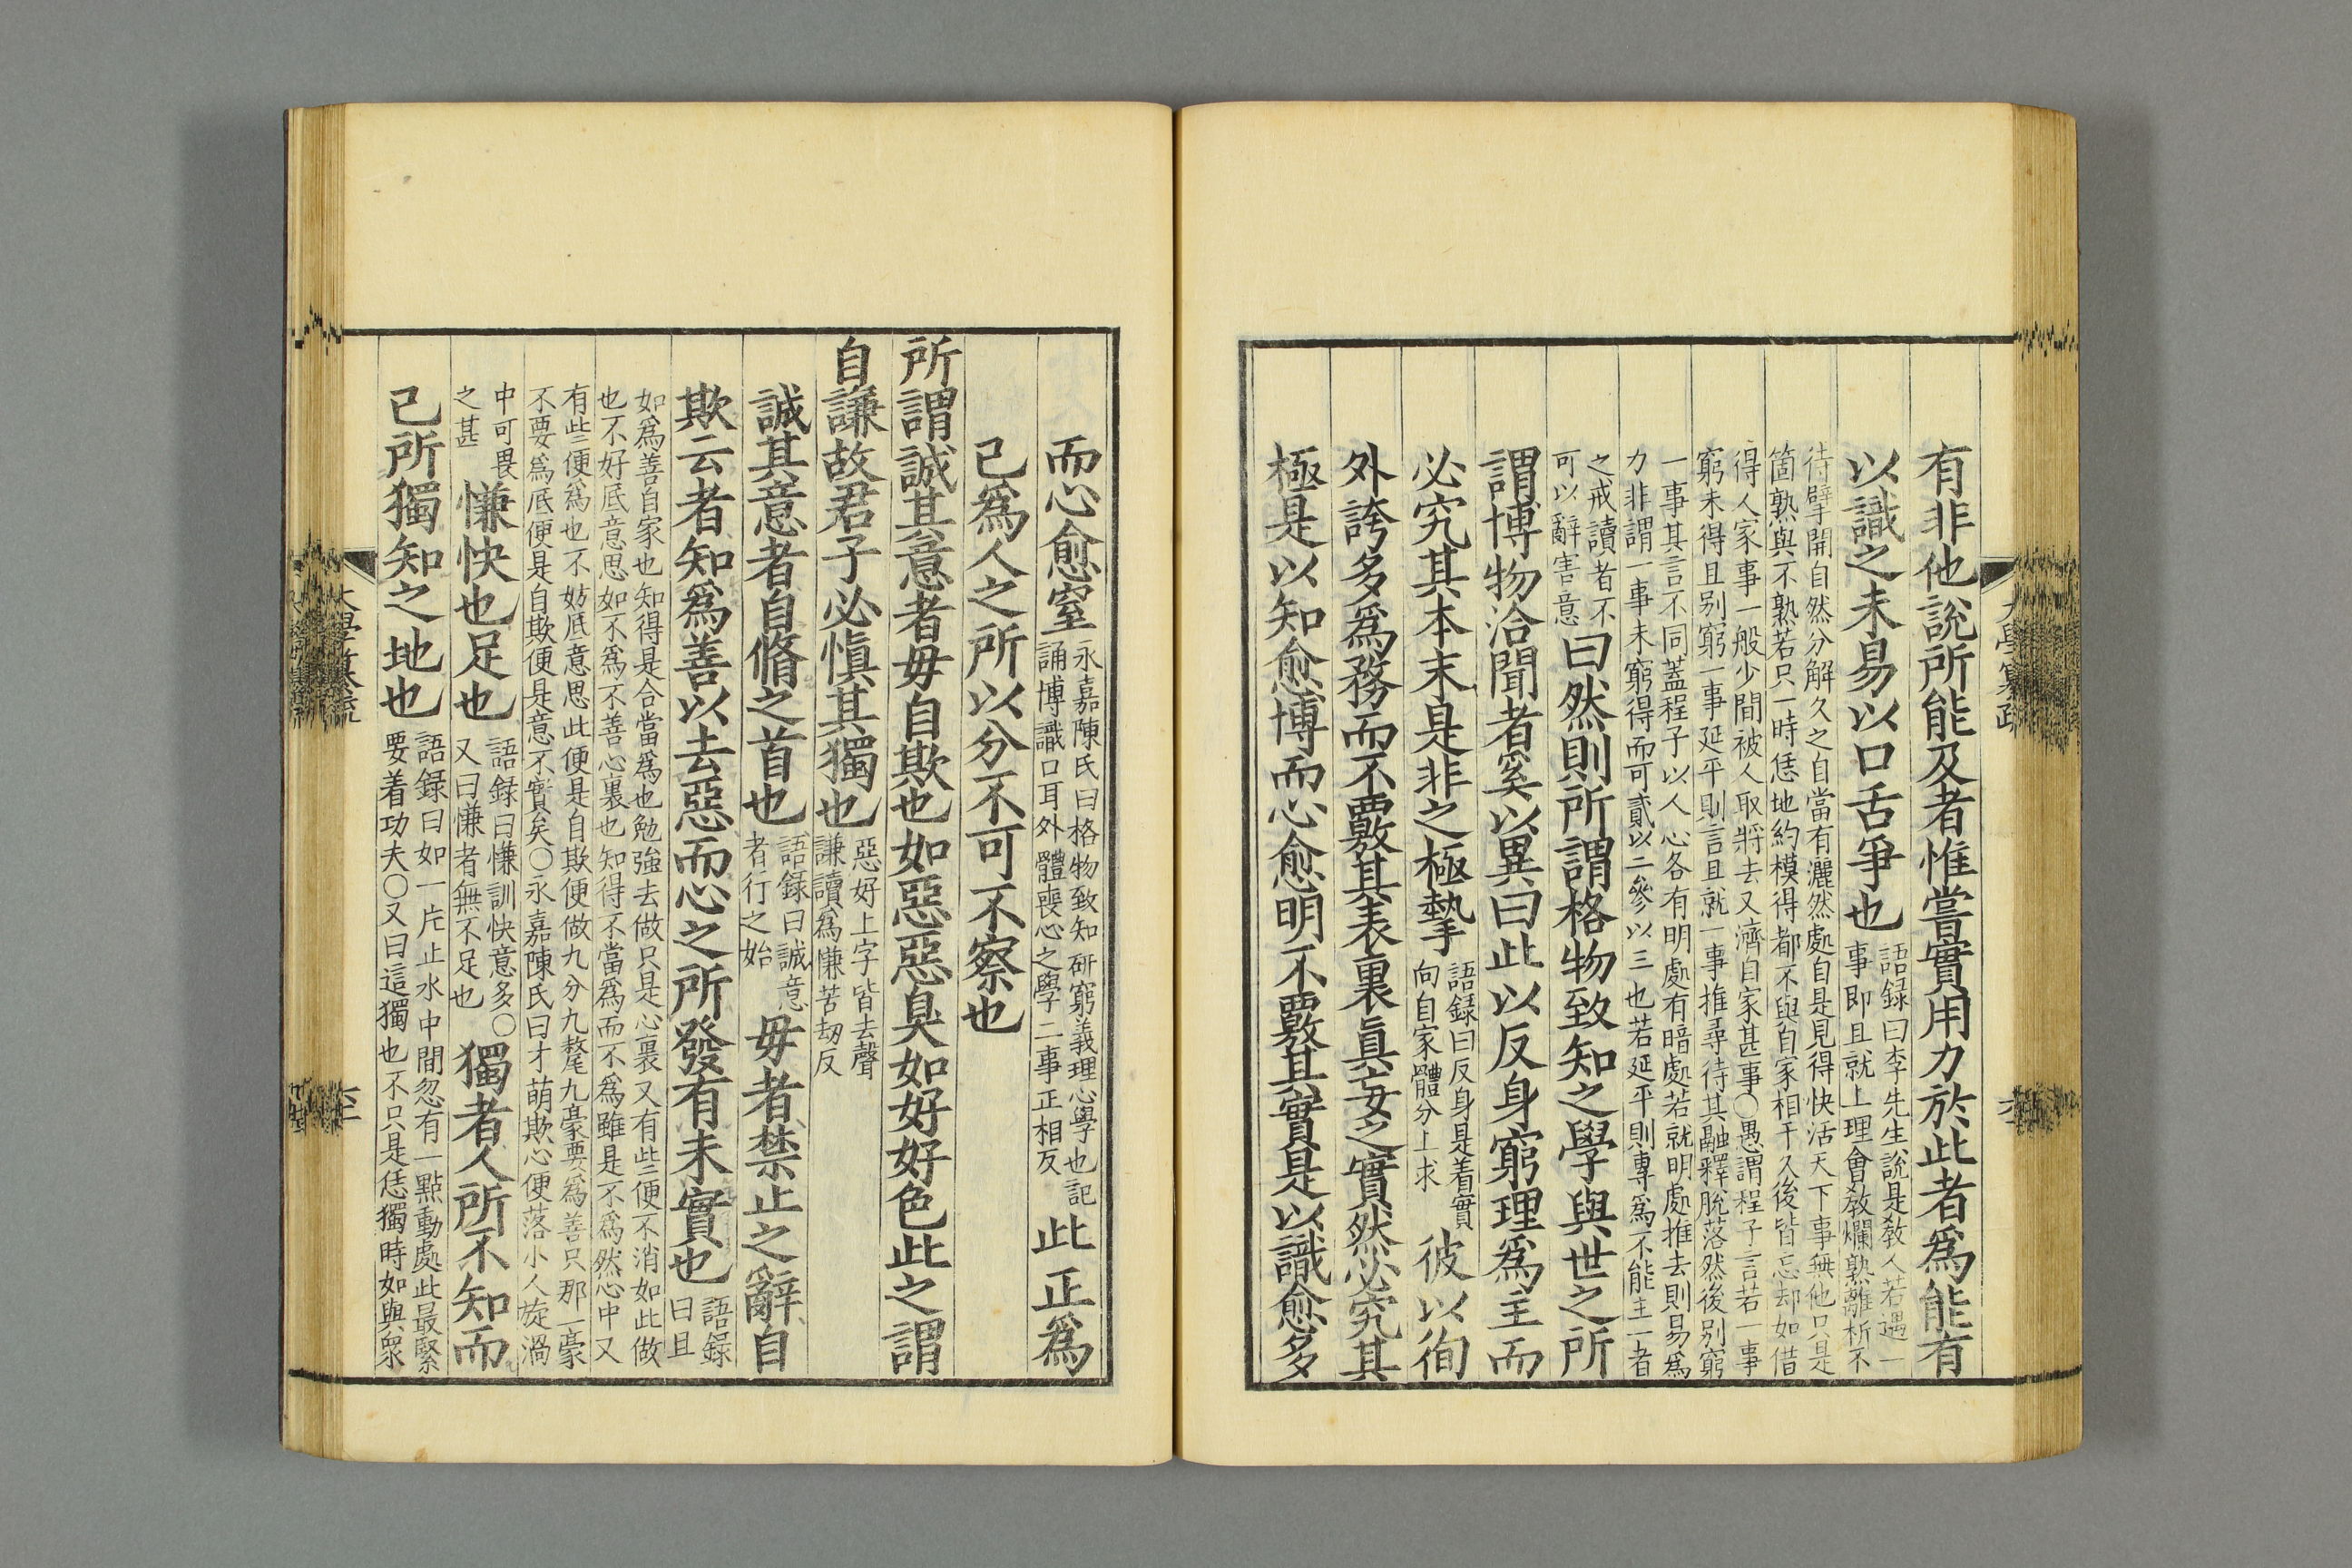 有非他說所能及者惟嘗實用力於此者爲能有
以識之未易以口舌爭也
語録曰李先生說是敎人若遇一
事即且就上理會敎爛熟離析不
待擘開自然分解久之自當有灑然處自是見得快活天下事無他只是
箇熟與不熟若只一時恁地約模得都不與自家相干久後皆忘却如借
得人家事一般少間被人取將去又濟自家甚事○愚謂程子言若一事
窮未得且别窮一事延平則言且就一事推尋待其融釋脫落然後别窮
一事其言不同蓋程子以人心各有明處有暗處若就明處推去則易爲
力非謂一事未窮得而可貳以二參以三也若延平則專爲不能主一者
之戒讀者不
可以辭害意
曰然則所謂格物致知之學與世之所
謂博物洽聞者奚以異曰此以反身窮理爲主而
必究其本末是非之極摯
語録曰反身是着實
向自家體分上求
彼以徇
外誇多爲務而不覈其表裏眞妄之實然必究其
極是以知愈博而心愈明不覈其實是以識愈多
而心愈窒
永嘉陳氏曰格物致知研窮義理心學也記
誦博識口耳外體喪心之學二事正相反
此正爲
己爲人之所以分不可不察也
所謂誠其意者毋自欺也如惡惡臭如好好色此之謂
自謙故君子必愼其獨也
惡好上字皆去聲
謙讀爲慊苦劫反
誠其意者自脩之首也
語録曰誠意
者行之始
毋者禁止之辭自
欺云者知爲善以去惡而心之所發有未實也
語録
曰且
如爲善自家也知得是合當爲也勉強去做只是心裏又有些便不消如此做
也不好底意思如不爲不善心裏也知得不當爲而不爲雖是不爲然心中又
有些便爲也不妨底意思此便是自欺便做九分九氂九豪要爲善只那一豪
不要爲底便是自欺便是意不實矣○永嘉陳氏曰才萌欺心便落小人旋渦
中可畏
之甚
慊快也足也
語録曰慊訓快意多○
又曰慊者無不足也
獨者人所不知而
己所獨知之地也
語録曰如一片止水中間忽有一點動處此最緊
要着功夫○又曰這獨也不只是恁獨時如與衆